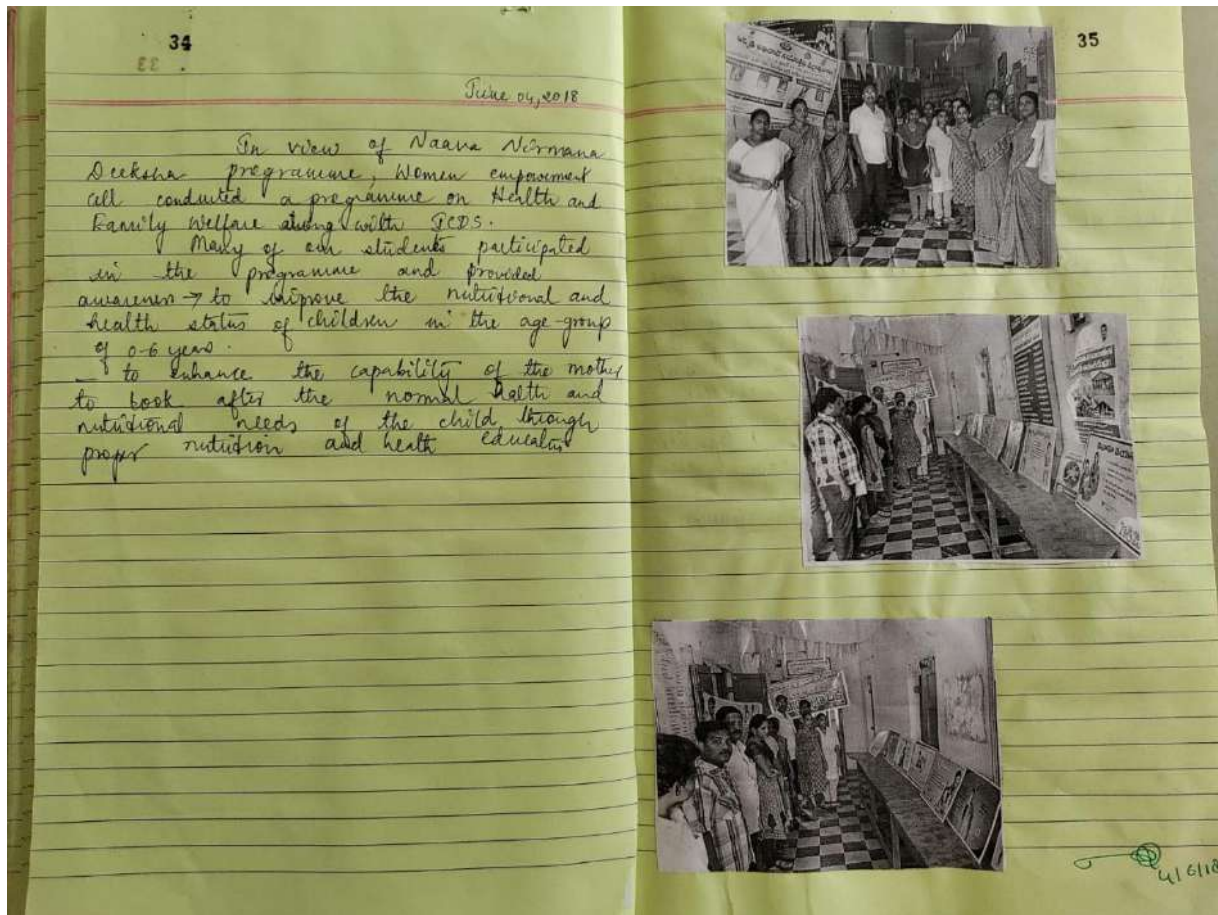 34
33
June 04, 2018
In view of Naava Nirmana
Deeksha programme, Women empowerment
cell conducted a programme on Health and
Family Welfare along with ICDS.
Many of our students participated
in the programme and provided
awareness → to improve the nutritional and
health status of children in the age-group
of 0-6 years.
_ to enhance the capability of the mother
to look after the normal health and
nutritional needs of the child through
proper nutrition and health
35
4/6/18